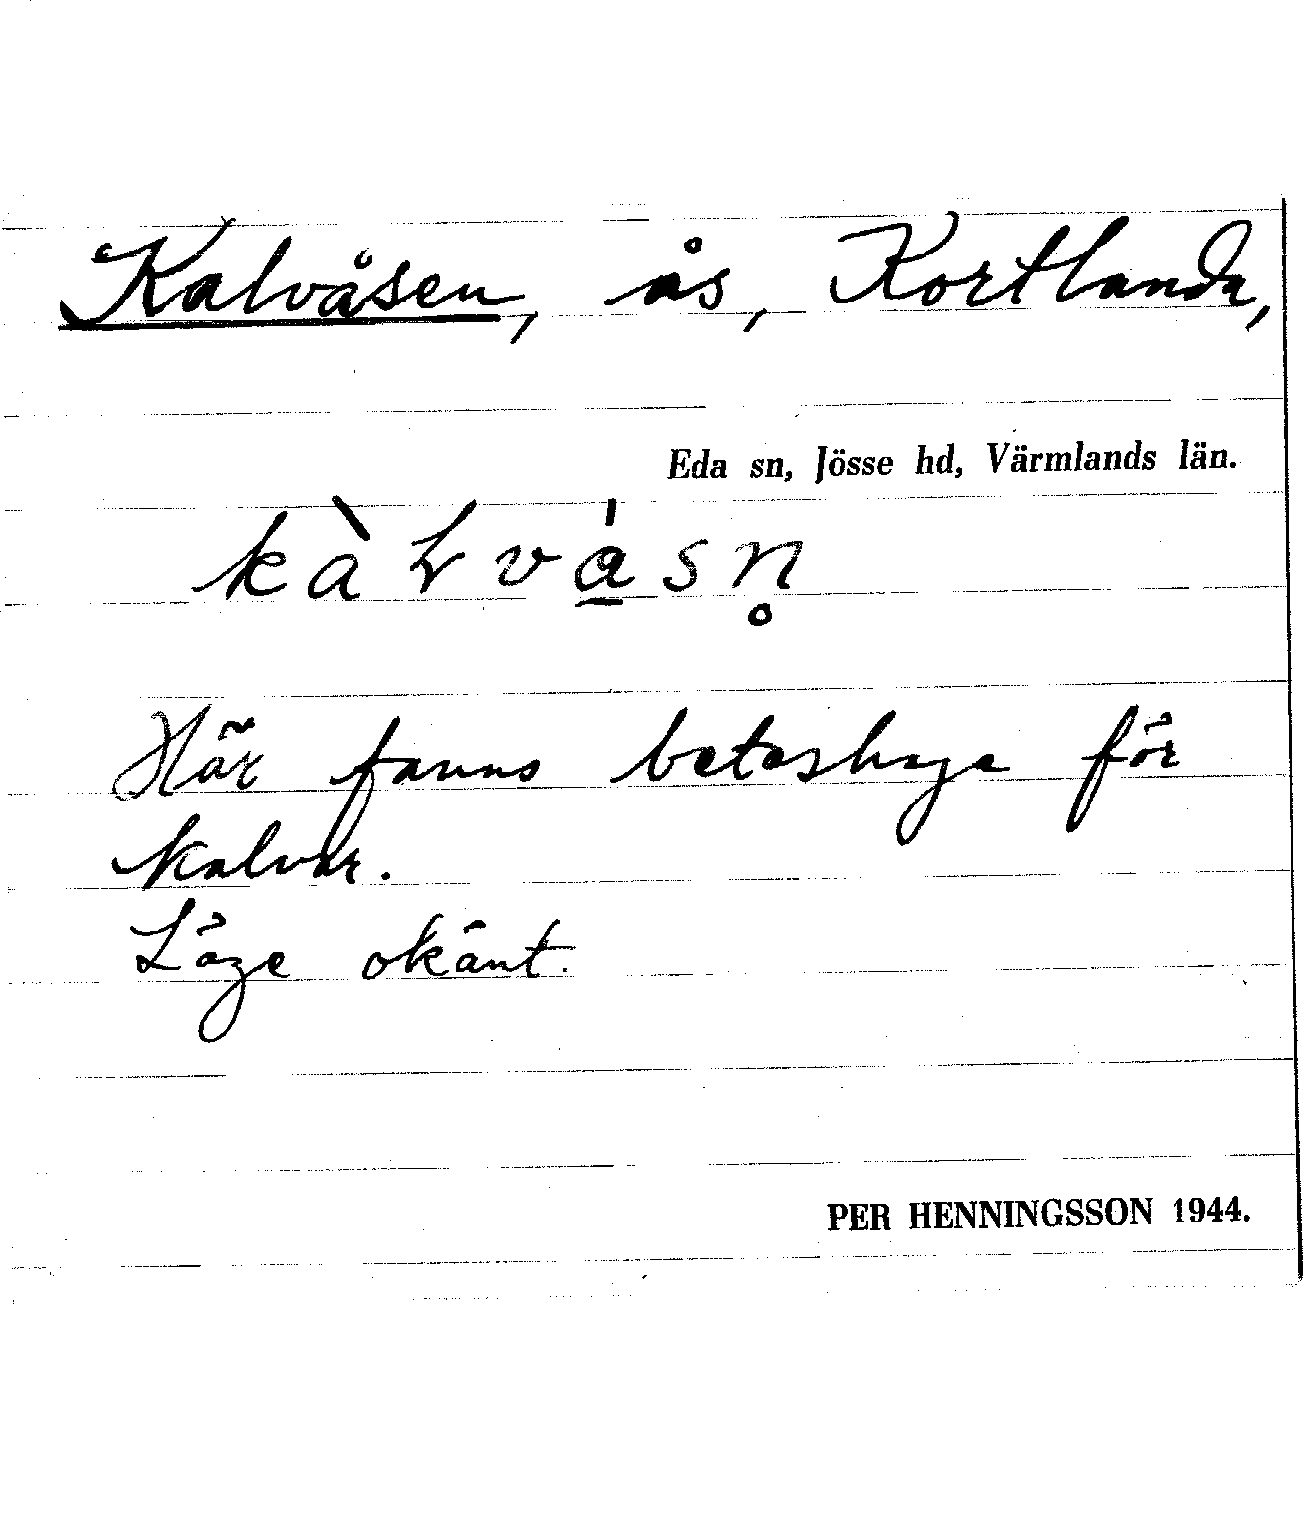 Kalvåsen, ås, Kortlanda,
Eda sn, Jösse hd, Värmlands län.
Här fanns beteshage för
kalvar.
Läge okänt.
PER HENNINGSSON 1944.